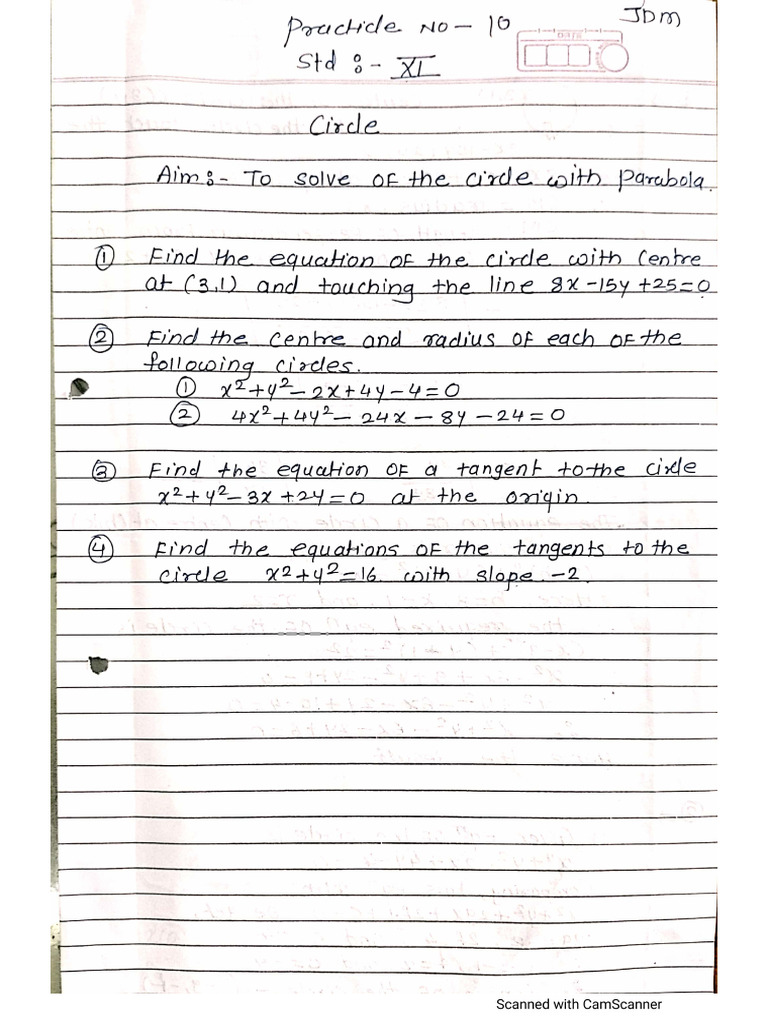 JDM
Practicle No - 10
DATE
Std :- XI
Circle
Aim :- To solve of the circle with parabola.
① Find the equation of the circle with Centre
at (3,1) and touching the line 8x-15y+25=0
② Find the centre and radius of each of the
following circles.
① x²+y²-2x+4y-4=0
② 4x²+4y²-24x-8y-24=0
③ Find the equation of a tangent to the circle
x²+y²-3x+2y=0 at the origin.
④ Find the equations of the tangents to the
circle x²+y²=16 with slope -2.
Scanned with CamScanner